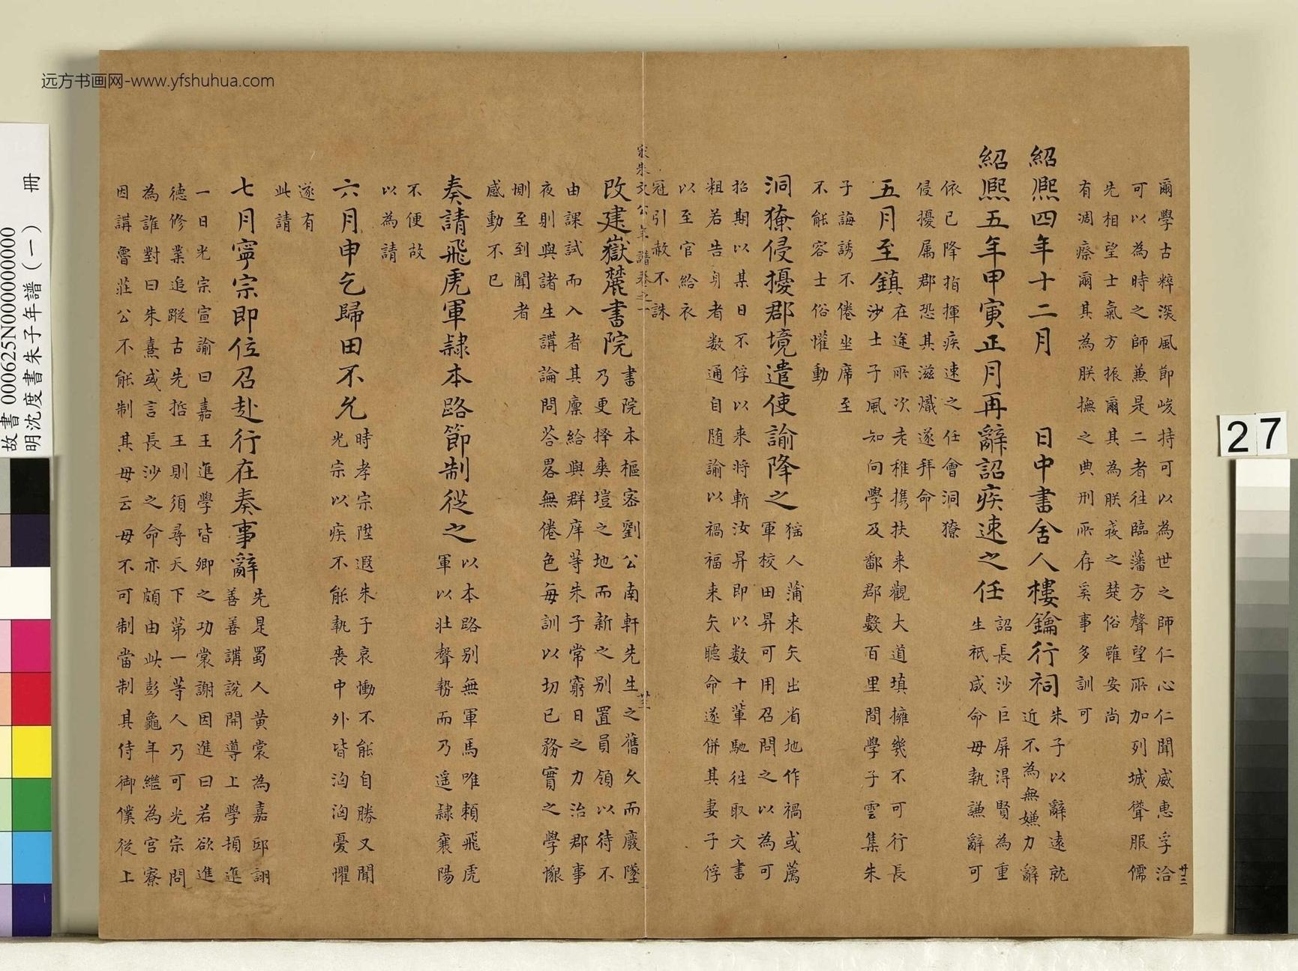 远方书画网-www.yfshuhua.com
故書 000625N000000000 冊
明沈度書朱子年譜(一)
27
爾學古粹深風節峻持可以為世之師仁心仁聞威惠孚洽
可以為時之師兼是二者往臨藩方聲望所加列城聳服儒
先相望士氣方振爾其為朕莪之楚俗雖安尚
有凋瘵爾其為朕撫之典刑所存奚事多訓可
廿三
紹熙四年十二月 日中書舍人樓鑰行祠
朱子以辭遠就
近不為無嫌力辭
紹熙五年甲寅正月再辭詔疾速之任
詔長沙巨屏得賢為重
生祇咸命毋執謙辭可
依已降指揮疾速之任會洞獠
侵擾属郡恐其滋熾遂拜命
五月至鎮
在途所次老稚携扶来觀大道填擁幾不可行長
沙士子風知向學及鄰郡數百里間學子雲集朱
子誨誘不倦坐席至
不能容士俗懽動
洞獠侵擾郡境遣使諭降之
猺人蒲来矢出省地作禍或薦
軍校田昇可用召問之以為可
招期以某日不俘以来將斬汝昇即以數十輩馳往取文書
粗若告身者数通自随諭以禍福来矢聽命遂併其妻子俘
以至官給衣
冠引赦不誅
宋朱文公年譜卷之一
改建嶽麓書院
書院本樞密劉公南軒先生之舊久而廢墜
乃更擇爽塏之地而新之别置員領以待不
由課試而入者其廩給與群庠等朱子常窮日之力治郡事
夜則與諸生講論問荅畧無倦色每訓以切已務實之學懇
惻至到聞者
感動不已
奏請飛虎軍隷本路節制從之
以本路别無軍馬唯賴飛虎
軍以壯聲勢而乃遥隷襄陽
不便故
以為請
六月申乞歸田不允
時孝宗陞遐朱子哀慟不能自勝又聞
光宗以疾不能執喪中外皆洶洶憂懼
遂有
此請
七月寧宗即位召赴行在奏事辭
先是蜀人黄裳為嘉邸翊
善善講說開導上學頓進
一日光宗宣諭曰嘉王進學皆卿之功裳謝因進曰若欲進
德修業追蹤古先哲王則須尋天下第一等人乃可光宗問
為誰對曰朱熹或言長沙之命亦頗由此彭龜年繼為宮寮
因講魯莊公不能制其母云母不可制當制其侍御僕從上